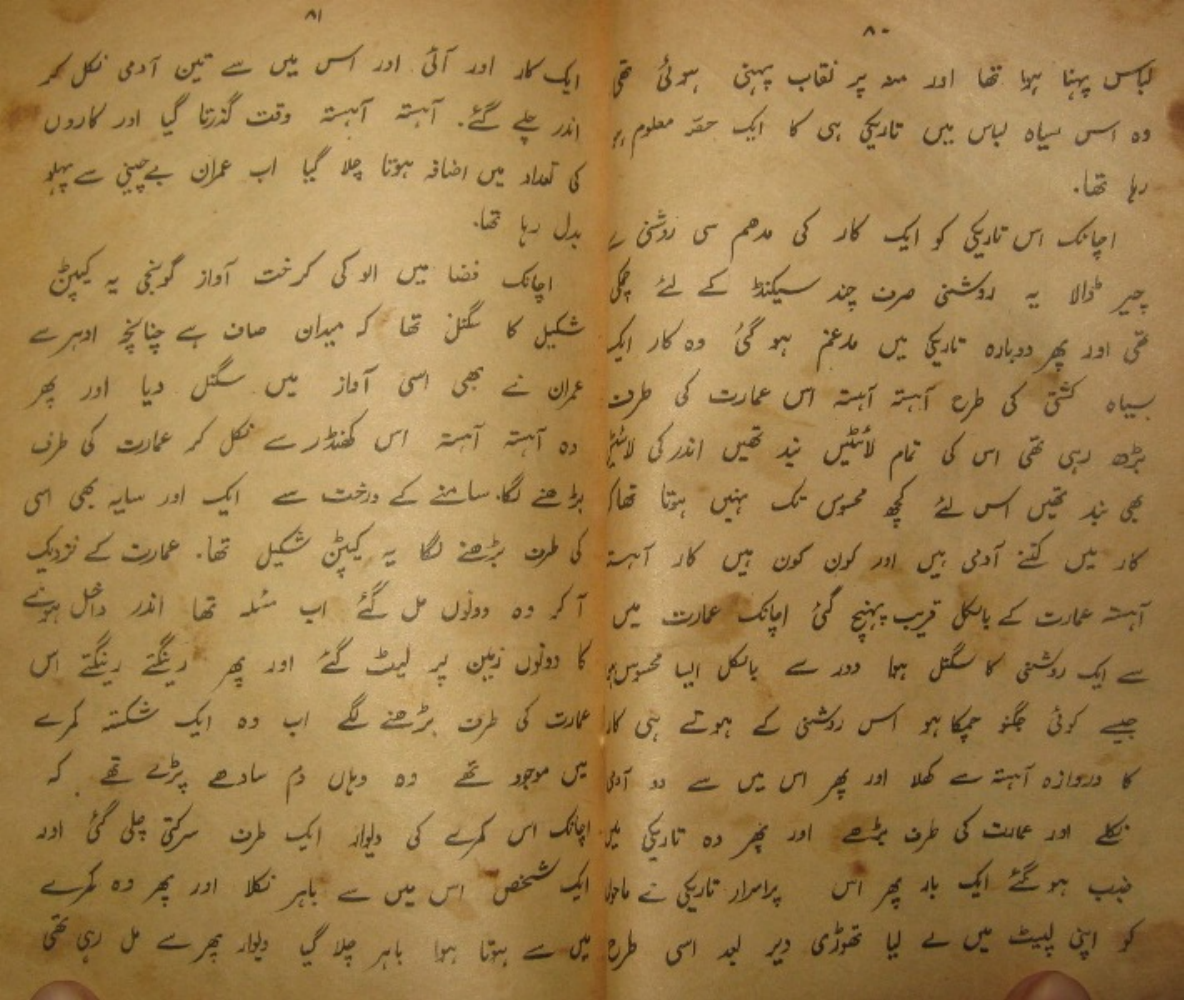 ۸۰
لباس پہنا ہوا تھا اور منہ پر نقاب پہنی ہوئی تھی
وہ اس سیاہ لباس میں تاریکی ہی کا ایک حصّہ معلوم ہو
رہا تھا۔
اچانک اس تاریکی کو ایک کار کی مدھم سی روشنی نے
چیر ڈالا یہ روشنی صرف چند سیکنڈ کے لئے چمکی
تھی اور پھر دوبارہ تاریکی میں مدغم ہو گئی وہ کار ایک
سیاہ کشتی کی طرح آہستہ آہستہ اس عمارت کی طرف
بڑھ رہی تھی اس کی تمام لائٹیں بند تھیں اندر کی لائٹیں
بھی بند تھیں اس لئے کچھ محسوس تک نہیں ہوتا تھا کہ
کار میں کتنے آدمی ہیں اور کون کون ہیں کار آہستہ
آہستہ عمارت کے بالکل قریب پہنچ گئی اچانک عمارت میں
سے ایک روشنی کا سگنل ہوا دور سے بالکل ایسا محسوس ہو
جیسے کوئی جگنو چمکا ہو اس روشنی کے ہوتے ہی کار
کا دروازہ آہستہ سے کھلا اور پھر اس میں سے دو آدمی
نکلے اور عمارت کی طرف بڑھے اور پھر وہ تاریکی میں
جذب ہو گئے ایک بار پھر اس پراسرار تاریکی نے ماحول
کو اپنی لپیٹ میں لے لیا تھوڑی دیر بعد اسی طرح
۸۱
ایک کار اور آئی اور اس میں سے تین آدمی نکل کر
اندر چلے گئے۔ آہستہ آہستہ وقت گذرتا گیا اور کاروں
کی تعداد میں اضافہ ہوتا چلا گیا اب عمران بےچینی سے پہلو
بدل رہا تھا۔
اچانک فضا میں الو کی کرخت آواز گونجی یہ کیپٹن
شکیل کا سگنل تھا کہ میدان صاف ہے چنانچہ ادہر سے
عمران نے بھی اسی آواز میں سگنل دیا اور پھر
وہ آہستہ آہستہ اس کھنڈر سے نکل کر عمارت کی طرف
بڑھنے لگا۔ سامنے کے درخت سے ایک اور سایہ بھی اسی
کی طرف بڑھنے لگا یہ کیپٹن شکیل تھا۔ عمارت کے نزدیک
آ کر وہ دونوں مل گئے اب مسٔلہ تھا اندر داخل ہونے
کا دونوں زمین پر لیٹ گئے اور پھر رینگتے رینگتے اس
عمارت کی طرف بڑھنے لگے اب وہ ایک شکستہ کمرے
میں موجود تھے وہ وہاں دم سادھے پڑے تھے کہ
اچانک اس کمرے کی دیوار ایک طرف سرکتی چلی گئی اور
ایک شخص اس میں سے باہر نکلا اور پھر وہ کمرے
میں سے ہوتا ہوا باہر چلا گیا دیوار پھر سے مل رہی تھی